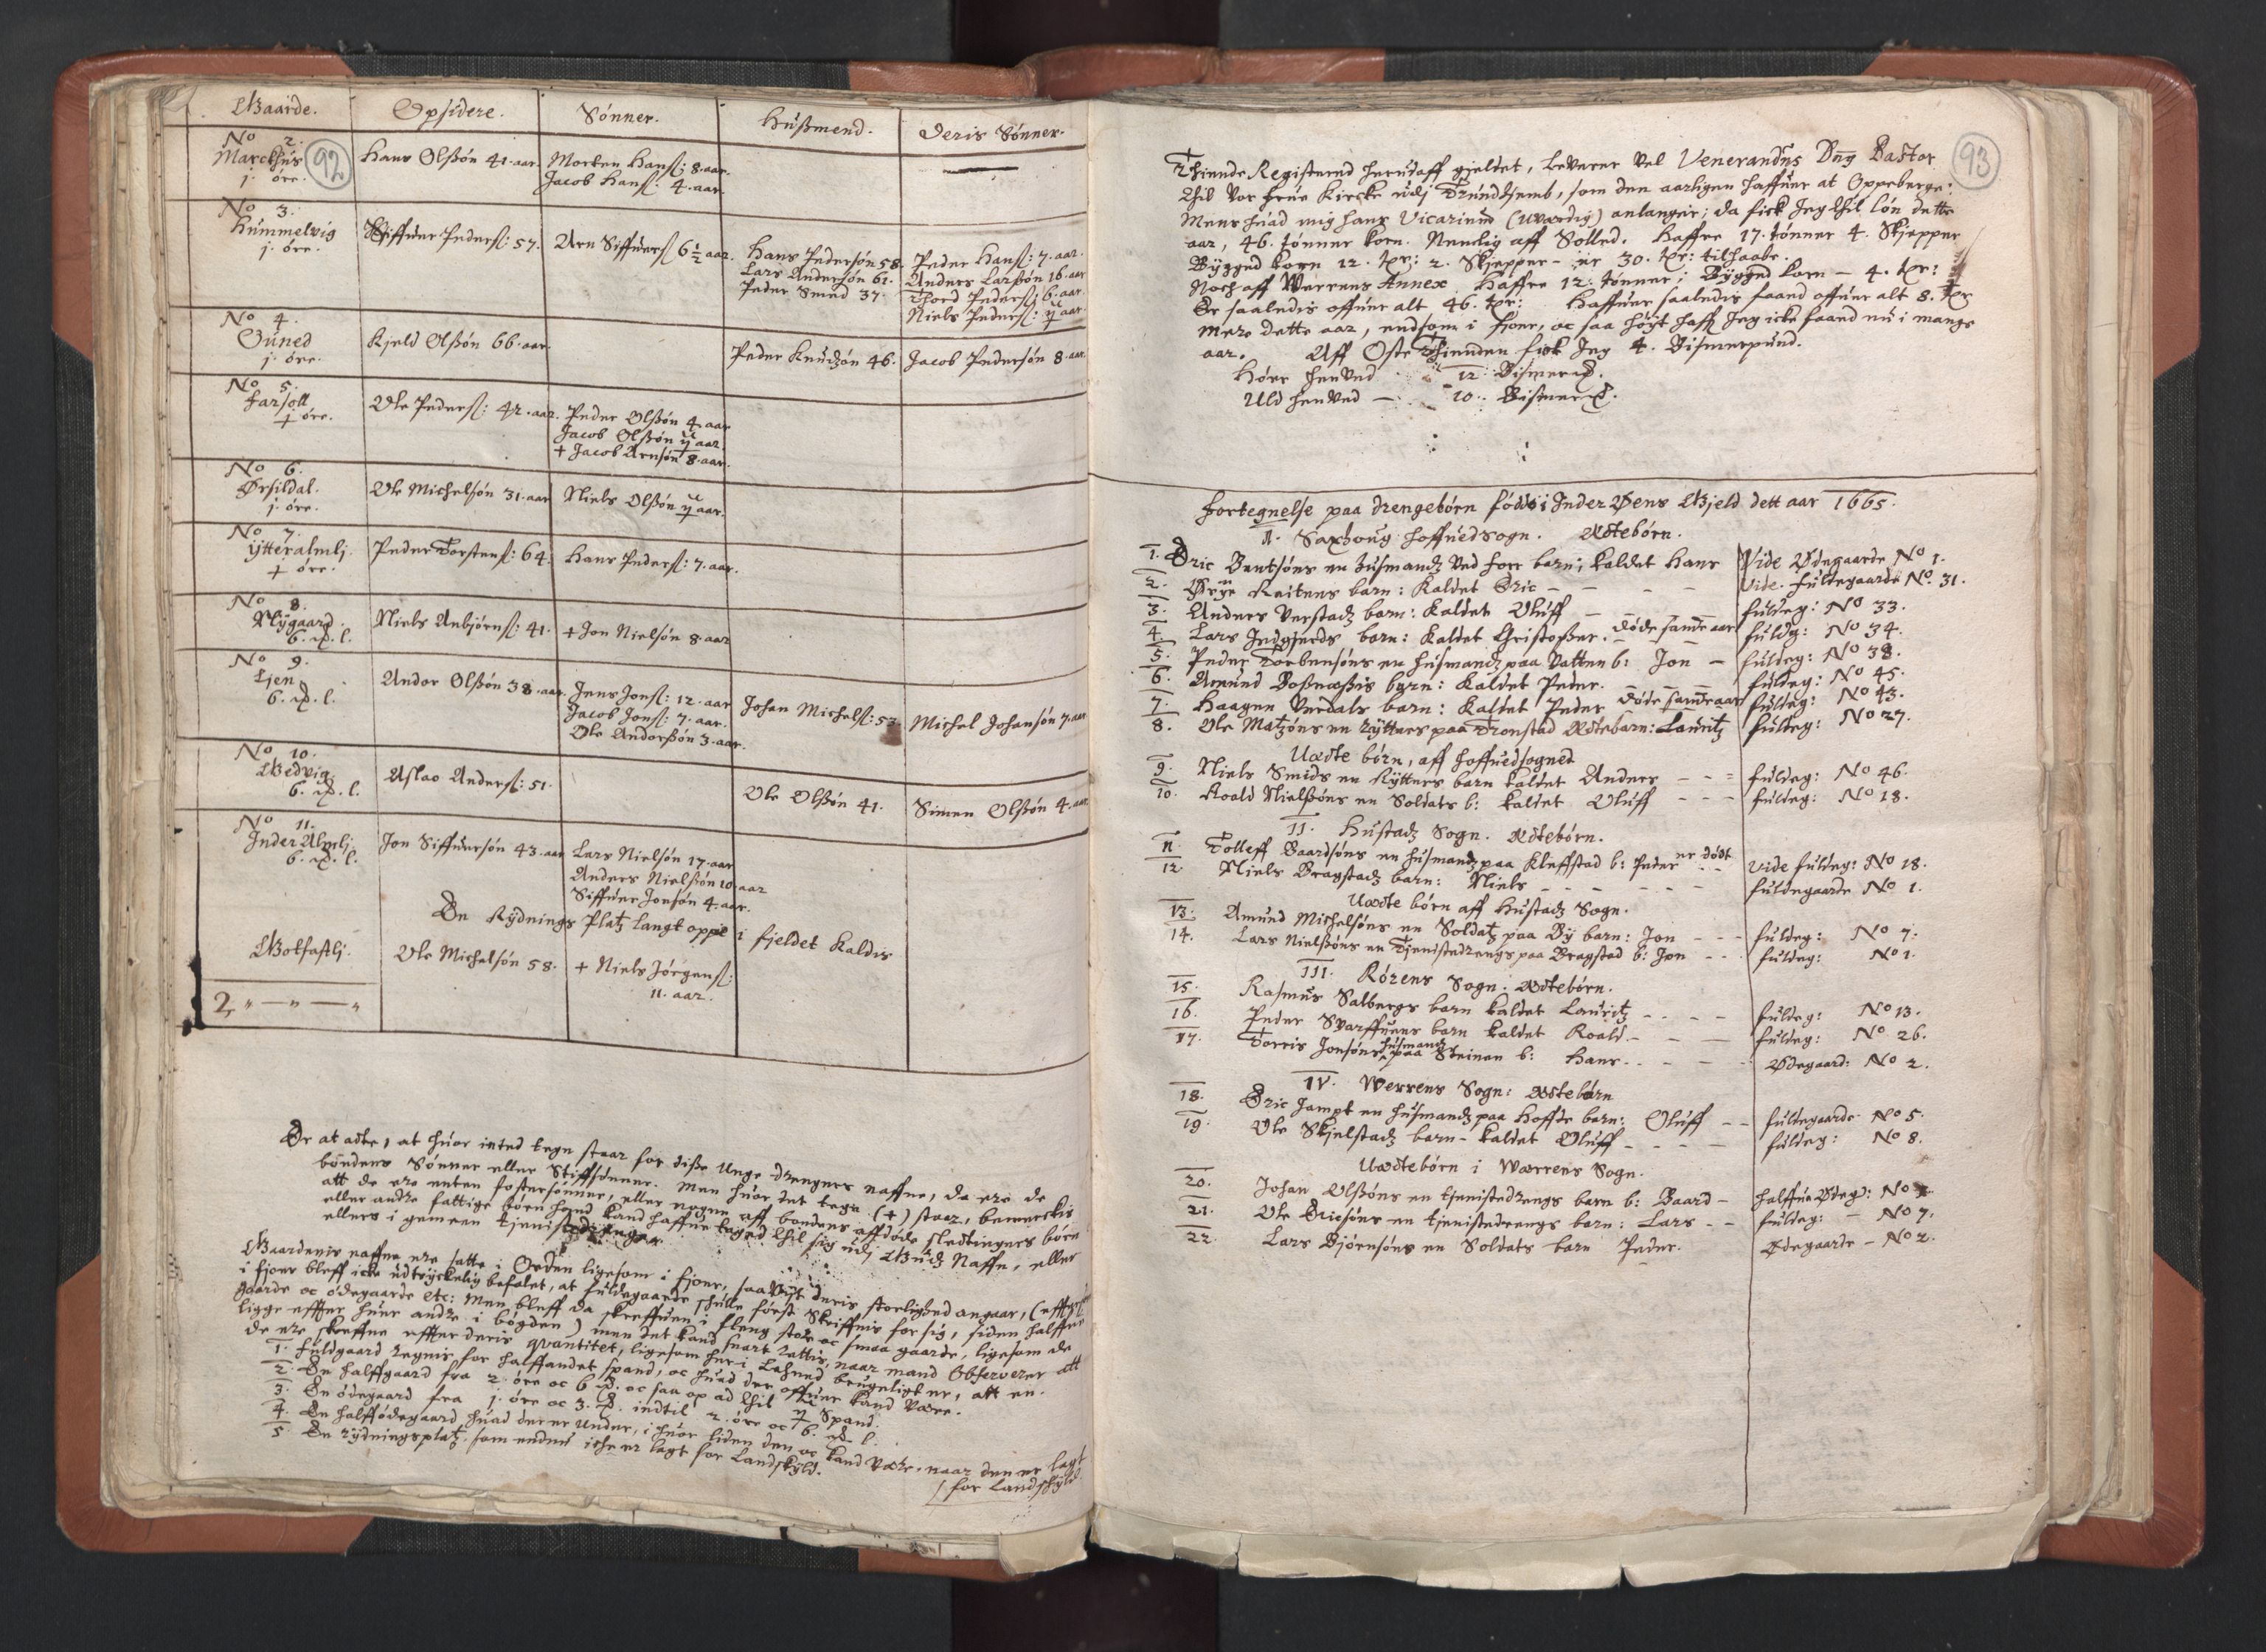 Gaarde. Opsidere. Sønner. Hußmend. Deris Sønner.
No 2.
Marckhus 92 Hans Olßøn 41. aar. Morten Hanß: 8. aar.
j. øre. Jacob Hanß: 4. aar.
No 3.
Hummelvig Siffuer Pederß: 57. Arn Siffuerß 6½ aar. Hans Pedersøn 58. Peder Hanß: 7. aar.
j. øre. Lars Andersøn 61. Anders Larßøn 16. aar
Peder Smed 37. Thord Pederß: 6. aar.
Niels Pederß: aar.
No 4.
Ouned Kjeld Olßøn 66. aar. Peder Knudzøn 46. Jacob Pedersøn 8. aar.
j. øre.
No 5.
Farsoll Ole Pederß: 42. aar. Peder Olßøn 4. aar
øre. Jacob Olßøn aar.
+ Jacob Arnsøn 8. aar.
No 6.
Ørsildal. Ole Michelsøn 31. aar Niels Olßøn aar.
j. øre.
No 7.
Ytteralmlj. Peder Torstenß: 64. Hans Pederß: 7. aar.
øre.
No 8.
Nygaard. Niels Anbjørnß: 41. + Jon Nielsøn 8. aar
6. l.
No 9.
Lien Andor Olßøn 38. aar. Jens Jonß: 12. aar Johan Michelß: 53. Michel Johansøn 7. aar
6. l. Jacob Jonß: 7. aar.
Ole Andorßøn 3. aar.
No 10.
Gedvig. Aslac Anderß: 51. Ole Olßøn 41. Simen Olßøn 4. aar
6. l.
No 11.
Inder Almlj. Jon Siffuersøn 43. aar Lars Nielsøn 17. aar
6. l. Anders Nielßøn 10. aar
Siffuer Jonsøn 4. aar.
En Rydnings Platz langt oppe i fieldet kaldis
Gotfastlj. Ole Michelsøn 58. + Niels Jørgenß:
11. aar.
2,
Er at acte, at huor inted tegn staar for disse Unge drengers naffne, da ere de
bøndens Sønner eller Stiffsønner. Men huor det tegn (+) staar, bemerckis
att de ere enten fostersønner, eller nogen aff bondens affdøde slectingers børn
eller andre fattige børn hand kand haffue taged thil sig udj Gudz Naffn, eller
ellers i gemeen tienistedrenger.
Gaardenis naffne ere satte i Orden ligesom i fjor, saavit deris storlighed angaar,
i fjor bleff icke udtryckelig befalet, at fuldegaarde skulle først Skriffuis for sig, siden halffue
gaarde oc ødegaarde etc: Men bleff da skreffuen i fleng store oc smaa gaarde, ligesom de
ligge effter huer andre i bøgden) men det kand snart rettis, naar mand Observerer att
de ere skreffne effter deris qvantitet, ligesom her i Lehned brugeligt er, att en
1. fuldgaard regnis for halffandet spand, oc huad der offuer kand være.
2. En halffgaard fra 2. øre oc 6 oc saa op ad thil Spand.
3. En ødegaard fra j. øre oc 3. indtil 2. øre oc 6. l.
4. En halffødegaard huad der er Under, i huor liden den oc kand være, naar den er lagt
5 En rydningsplatz, som endnu icke er lagt for Landskyld. / for Landskyld.
93
Thiende Registerne herudaff gieldet, leverer Vel Venerandus Dng Pastor
thil Vor frue Kircke udj Trundhiemb, som den aarligen haffuer at Oppeberge:
Mens huad mig hans Vicarium (uværdig) anlanger; da fick Jeg thil løn dette
aar, 46. tønner korn. Nemlig aff Solled. Haffre 17. tønner 4. Skjepper
Bygged korn 12. tr: 2. Skjepper er 30. tr: tilhaabe.
Noch aff Werrens Annex Haffre 12. tønner; Bygged korn - 4. tr:
Er saaledis offuer alt 46. tr: Haffuer saaledis faaed offuer alt 8. tr
mere dette aar, end som i fjor, oc saa høyt haffr Jeg icke faaed nu i mange
aar. Aff Oste Thienden fick Jeg 4. Bismerpund.
Hør henved 12 Bismer.
Uld henved — 10. Bismer.
Fortegnelse paa drengebørn fødde i Inder Øens Gjeld dett aar 1665.
I. Saxhoug hoffuedsogn. Ectebørn.
1. Eric Bentsøns en husmandz ved barn; kaldet Hans Vide Ødegaarde No 1.
2. Reitens barn: kaldet Eric - - - Vide. fuldegaarde No. 31.
3. Anders Verstadz barn: kaldet Oluff - - - fuldeg: No 33.
4. Lars Jedgjerds barn: kaldet Christoffer. døde samme aar fuldg: No 34.
5. Peder Torbensøns en husmandz paa Vatten b: Jon - fuldeg: No 38.
6. Amund barn: kaldet Peder. fuldeg: No 45.
7. Haagen Verdals barn: kaldet Peder døde samme aar fuldeg: No 43.
8. Ole Matzøns en rytters paa Tronstad Ectebarn: Lauritz fuldeg: No 27.
Uecte børn, aff hoffuedsogned
9. Niels Smids en Rytters barn kaldet Anders - - = fuldeg: No 46.
10. Roald Nielßøns en Soldats b: kaldet Oluff - - - fuldeg: No 18.
II. Hustadz Sogn. Ectebørn.
11. Tolleff Baardsøns en husmandz paa Kleffstad b: Peder er dødt Vide fuldeg: No 18.
12. Niels Bragstadz barn: Niels - - - - fuldegaarde No 1.
Uecte børn aff Hustadz Sogn.
13. Amund Michelsøns en Soldatz paa By barn: Jon - - - fuldeg: No 7.
14. Lars Nielßøns en Tjenistedrengs paa Bragstad b: Jon - - fuldeg: No 1.
III. Rørens Sogn: Ectebørn.
15. Rasmus Salbergs barn kaldet Lauritz - - - - fuldeg: No 13.
16. Peder Svarffuens barn kaldet Roald - - - fuldeg: No 26.
17. Torris Jonsøns husmandz paa Steinen b: Hans - - - Ødegaard: No 2.
IV. Werrens Sogn: Ectebørn
18. Eric Jampt en husmandz paa Hoffde barn: Oluff - - fuldegaarde No 5.
19. Ole Skjelstadz barn - kaldet Oluff - - - - fuldeg: No 8.
Uectebørn i Werrens Sogn.
20. Johan Olßøns en tjenistedrengs barn b: Baard - halffue Ødeg: No
21. Ole Ericsøns en tjenistedrengs barn: Lars - - fuldeg: - No 7.
22. Lars Bjørnsøns en Soldats barn Peder. Ødegaarde - No 2.